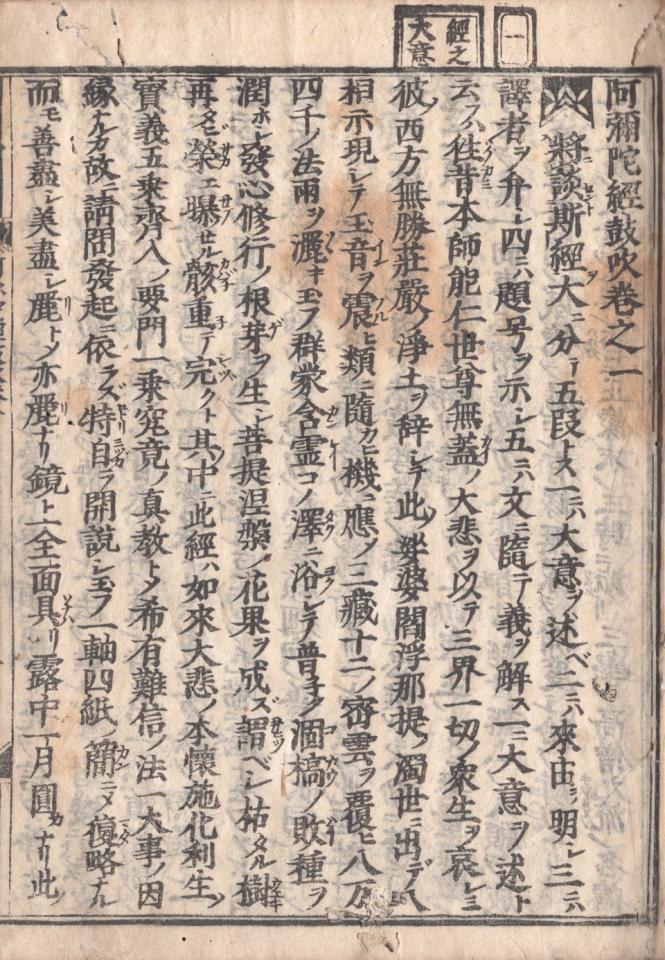 一
經之
大意
阿彌陀經鼓吹卷之一
將談斯經大ニ分テ五段トス一ニハ大意ヲ述ベ二ニハ來由ヲ明シ三ニハ
譯者ヲ弁シ四ニハ題号ヲ示シ五ニハ文ニ隨テ義ヲ解ス一ニ大意ヲ述ト
云フハ往昔本師能仁世尊無蓋ノ大悲ヲ以テ三界一切ノ衆生ヲ哀レミ
彼ノ西方無勝莊嚴ノ淨土ヲ辞シテ此ノ娑婆閻浮那提ノ濁世ニ出デ八
相示現シテ玉音ヲ震ヒ類ニ隨カヒ機ニ應ノ三藏十二ノ密雲ヲ覆ヒ八万
四千ノ法雨ヲ灑キ玉フ群蒙含霊コノ澤ニ浴シテ普子ク涸槁ノ敗種ヲ
潤ホシ發心修行ノ根芽ヲ生シ菩提涅槃ノ花果ヲ成ズ謂ベシ枯タル樹
再タビ榮エ曝セル骸重テ完クト其中ニ此經ハ如來大悲ノ本懷施化利生ノ
實義五乘齊入ノ要門一乘究竟ノ真教トメ希有難信ノ法一大事ノ因
緣ナルカ故ニ請問發起ニ依ラズ特自ラ開說シ玉フ一軸四紙ノ簡ニメ復略ナル
而モ善盡シ美盡シ麗トメ亦麗ナリ鏡上全面具リ露中一月圓カナリ此ノ